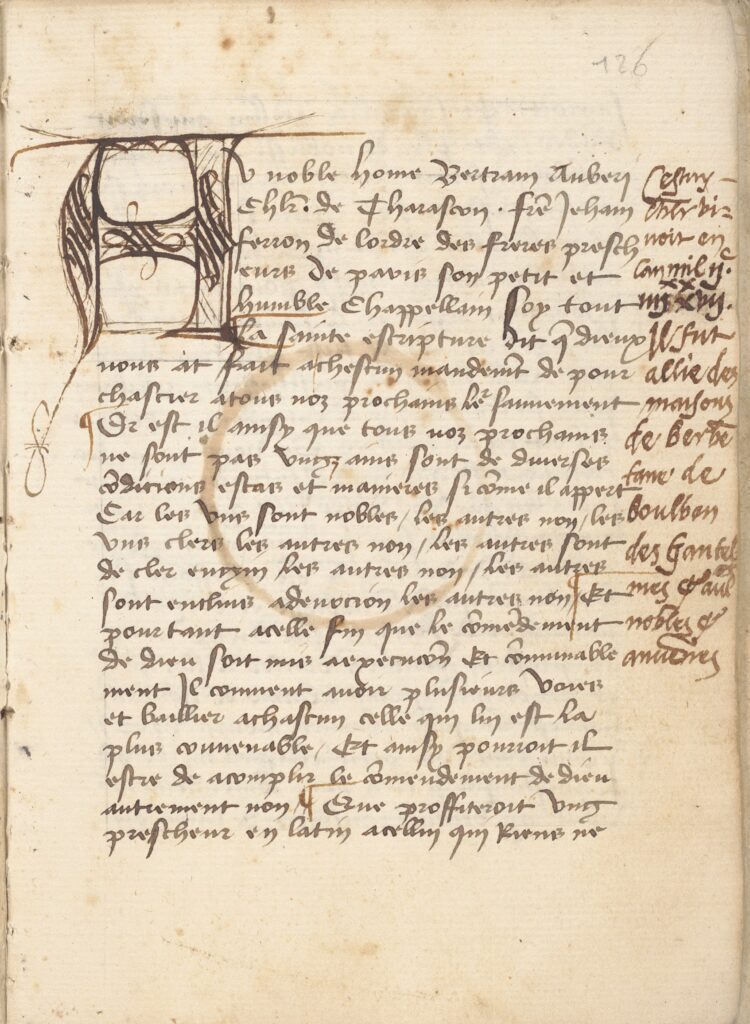 126
Au noble home Bertram Auberi
Chlr. de Tharascon. fre Jehan
ferron de lordre des freres presch
eurs de paris son petit et
humble Chappellain Soy tout
La sainte escripture dit q̃ dieux
nous at fait achescun mandemt de pour
chascier atous noz prochains le sauuement
Or est il ainsy que tous noz prochains
ne sont pas vngz ains sont de diuerses
cõdicions estas et manieres si cõme il appert
Car les vns sont nobles / les autres non / les
vns clers les autres non / les autres sont
de cler engyn les autres non / les autres
sont enclins adeuocion les autres non / Et
pourtant acelle fin que le cõmẽdement
de dieu soit mis aexecucõn Et conuinable
ment Il conuient auoir plusieurs voies
et baillier achascun celle qui lui est la
plus conuenable / Et ainsy pourroit il
estre de acomplir le cõmendement de dieu
autrement non / Que proffiteroit vng
prescheur en latin acellui qui Riens ne
Cestuy
viuoit en
lan mil ijc
Il fut
allie des
maisons
de Berbẽ
tane de
Boulbon
des Gantel
mes & aul
nobles &